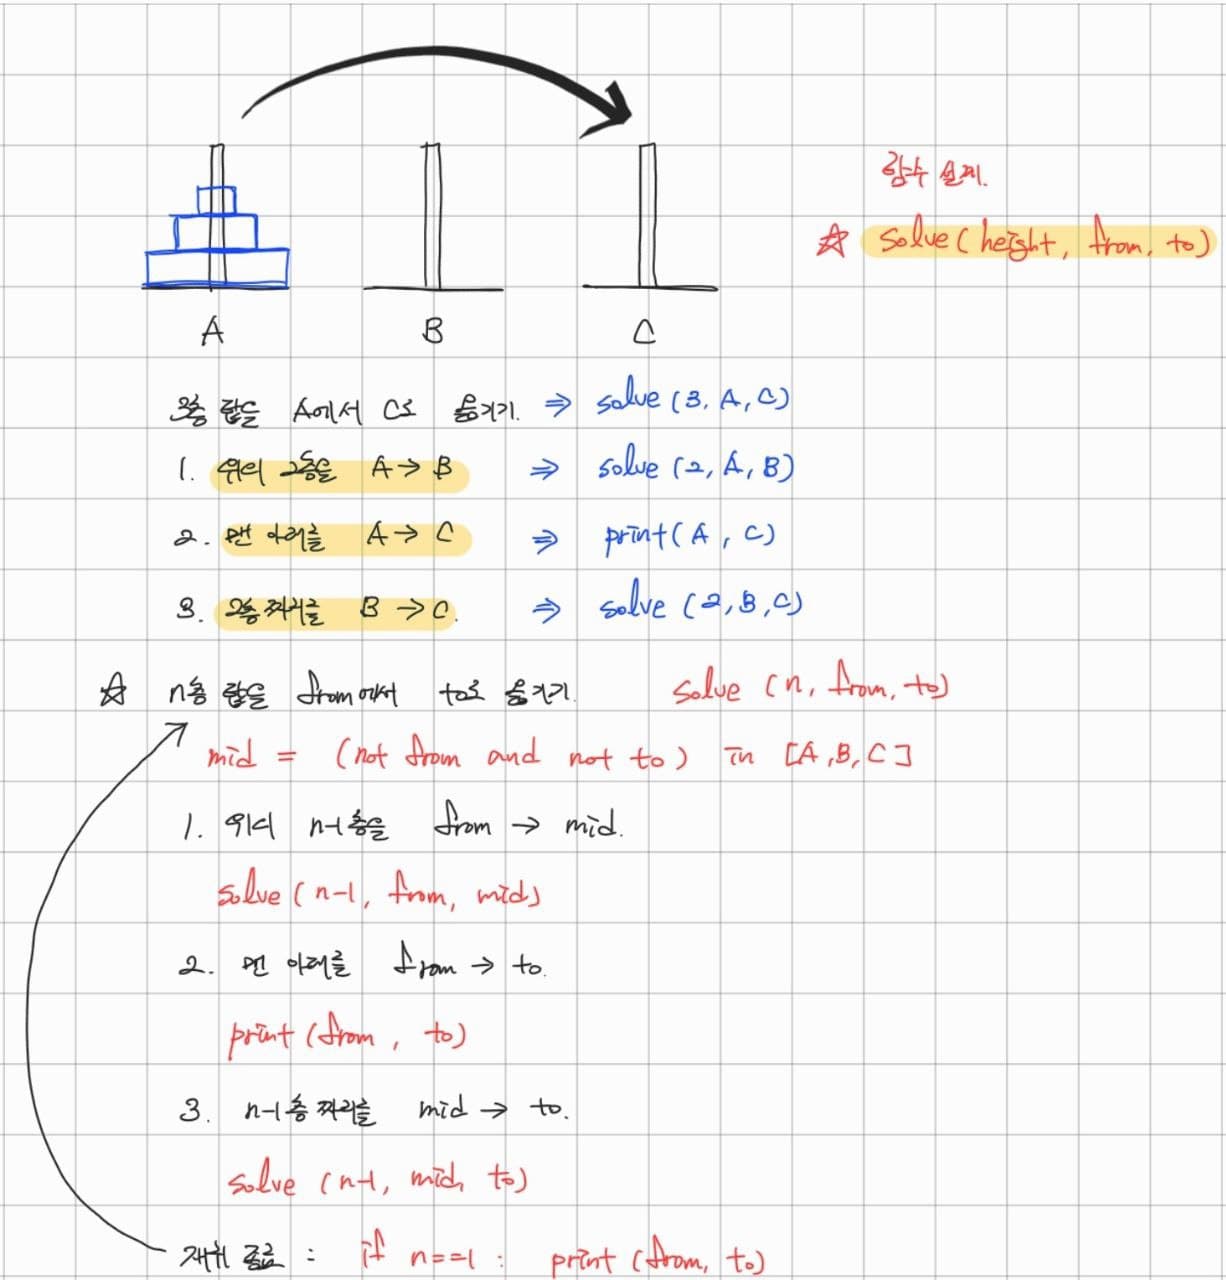 함수 설계.
☆ solve(height, from, to)
A B C
3층 탑을 A에서 C로 옮기기. ⇒ solve (3, A, C)
1. 위의 2층을 A → B ⇒ solve (2, A, B)
2. 맨 아래를 A → C ⇒ print(A, C)
3. 2층짜리를 B → C. ⇒ solve (2, B, C)
☆ n층 탑을 from에서 to로 옮기기. solve (n, from, to)
mid = (not from and not to) in [A, B, C]
1. 위의 n-1층을 from → mid.
solve (n-1, from, mid)
2. 맨 아래를 from → to.
print (from, to)
3. n-1층짜리를 mid → to.
solve (n-1, mid, to)
재귀 종료 : if n==1 : print (from, to)